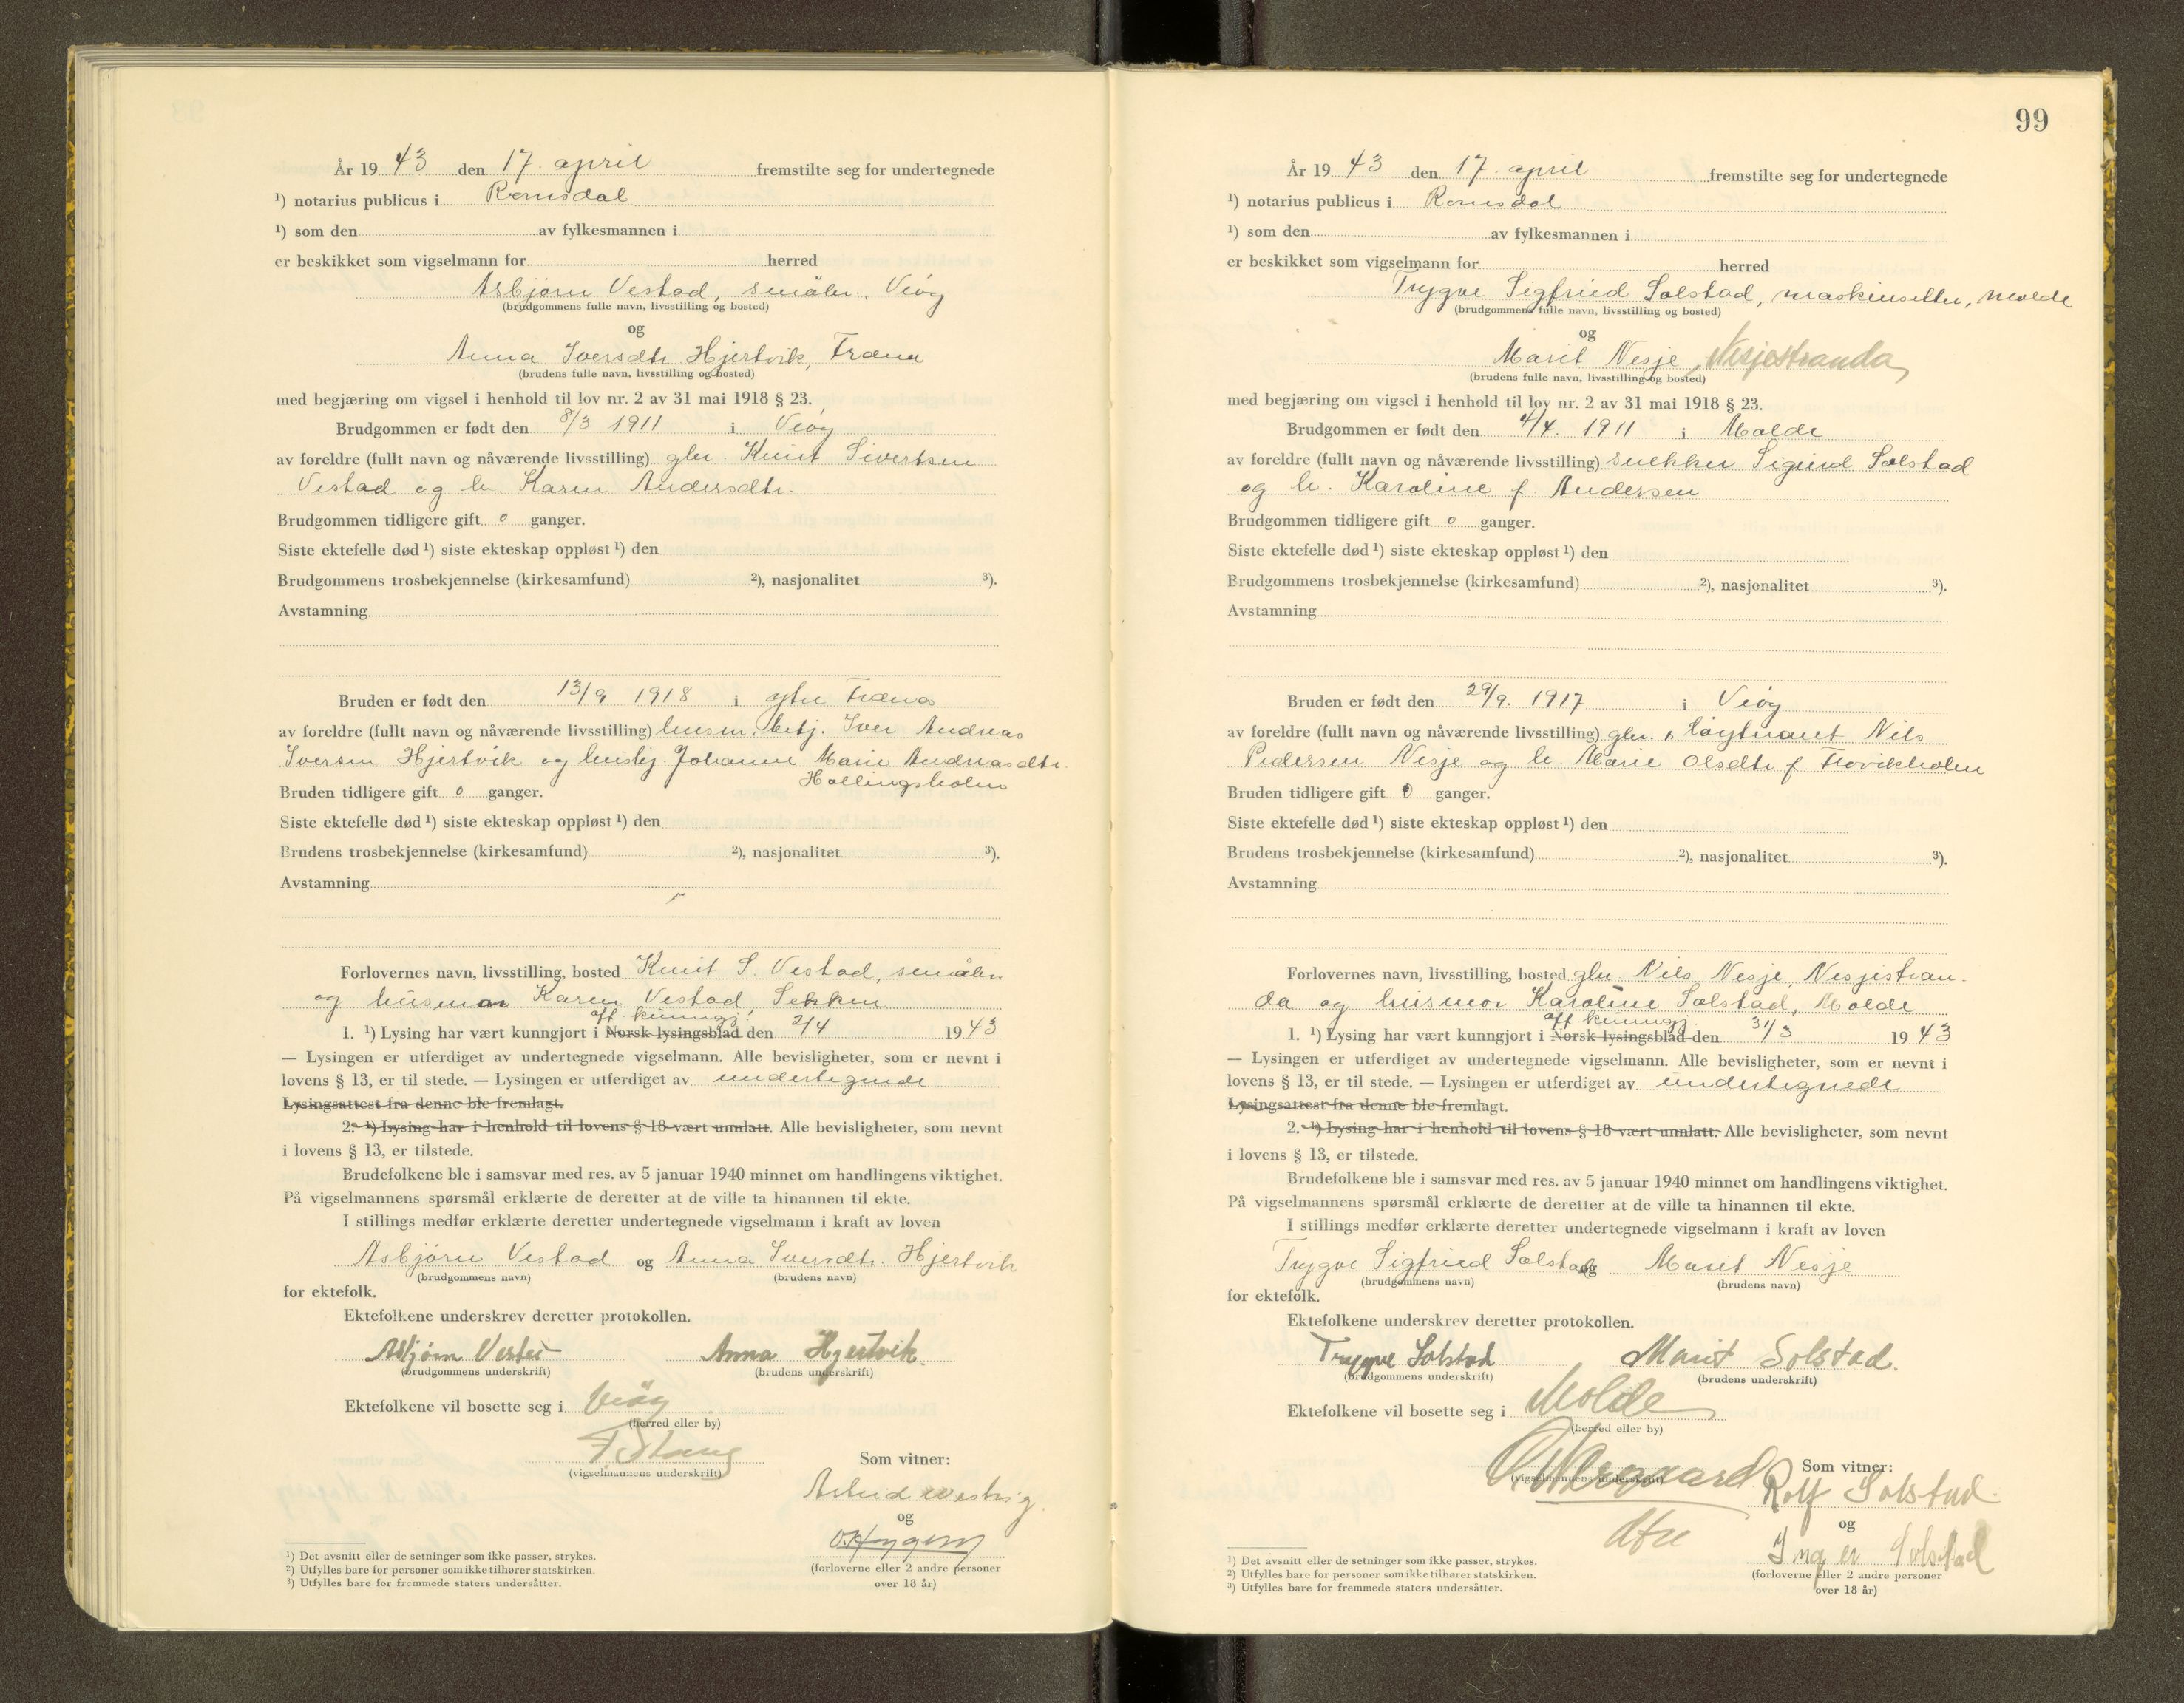 År 19 43 den 17. april fremstilte seg for undertegnede
¹) notarius publicus i Romsdal
¹) som den av fylkesmannen i
er beskikket som vigselmann for herred
Asbjørn Vestad, småbr., Veøy
(brudgommens fulle navn, livsstilling og bosted)
og
Anna Iversdtr Hjertvik, Fræna
(brudens fulle navn, livsstilling og bosted)
med begjæring om vigsel i henhold til lov nr. 2 av 31 mai 1918 § 23.
Brudgommen er født den 8/3 1911 i Veøy
av foreldre (fullt navn og nåværende livsstilling) gbr. Knut Sivertsen
Vestad og h. Karen Andersdtr.
Brudgommen tidligere gift 0 ganger.
Siste ektefelle død ¹) siste ekteskap oppløst ¹) den
Brudgommens trosbekjennelse (kirkesamfund) ²), nasjonalitet ³).
Avstamning
Bruden er født den 13/9 1918 i Fræna
av foreldre (fullt navn og nåværende livsstilling) Iver Andreas
Iversen Hjertvik og Johanne Marie Andreasdtr.
Hollingsholm
Bruden tidligere gift 0 ganger.
Siste ektefelle død ¹) siste ekteskap oppløst ¹) den
Brudens trosbekjennelse (kirkesamfund) ²), nasjonalitet ³).
Avstamning
Forlovernes navn, livsstilling, bosted Knut S. Vestad, småbr.
og husmor Karen Vestad, Sekken
off. kunngj.
1. ¹) Lysing har vært kunngjort i Norsk lysingsblad den 2/4 19 43
— Lysingen er utferdiget av undertegnede vigselmann. Alle bevisligheter, som er nevnt i
lovens § 13, er til stede. — Lysingen er utferdiget av undertegnede
Lysingsattest fra denne ble fremlagt.
2. ¹) Lysing har i henhold til lovens § 18 vært unnlatt. Alle bevisligheter, som nevnt
i lovens § 13, er tilstede.
Brudefolkene ble i samsvar med res. av 5 januar 1940 minnet om handlingens viktighet.
På vigselmannens spørsmål erklærte de deretter at de ville ta hinannen til ekte.
I stillings medfør erklærte deretter undertegnede vigselmann i kraft av loven
Asbjørn Vestad og Anna Iversdtr. Hjertvik
(brudgommens navn) (brudens navn)
for ektefolk.
Ektefolkene underskrev deretter protokollen.
Asbjørn Vestad Anna Hjertvik
(brudgommens underskrift) (brudens underskrift)
Ektefolkene vil bosette seg i Veøy
(herred eller by)
(vigselmannens underskrift)
Som vitner:
og
(forloverne eller 2 andre personer
over 18 år)
¹) Det avsnitt eller de setninger som ikke passer, strykes.
²) Utfylles bare for personer som ikke tilhører statskirken.
³) Utfylles bare for fremmede staters undersåtter.
99
År 19 43 den 17. april fremstilte seg for undertegnede
¹) notarius publicus i Romsdal
¹) som den av fylkesmannen i
er beskikket som vigselmann for herred
Trygve Sigfried Solstad, maskinsetter, Molde
(brudgommens fulle navn, livsstilling og bosted)
og
Marit Nesje, Nesjestranda
(brudens fulle navn, livsstilling og bosted)
med begjæring om vigsel i henhold til lov nr. 2 av 31 mai 1918 § 23.
Brudgommen er født den 4/4. 1911 i Molde
av foreldre (fullt navn og nåværende livsstilling) snekker Sigurd Solstad
og h. Karoline f. Andersen
Brudgommen tidligere gift 0 ganger.
Siste ektefelle død ¹) siste ekteskap oppløst ¹) den
Brudgommens trosbekjennelse (kirkesamfund) ²), nasjonalitet ³).
Avstamning
Bruden er født den 29/9. 1917 i Veøy
av foreldre (fullt navn og nåværende livsstilling) gbr. løytnant Nils
Pedersen Nesje og h. Marie Olsdtr f.
Bruden tidligere gift 0 ganger.
Siste ektefelle død ¹) siste ekteskap oppløst ¹) den
Brudens trosbekjennelse (kirkesamfund) ²), nasjonalitet ³).
Avstamning
Forlovernes navn, livsstilling, bosted gbr. Nils Nesje, Nesjestran-
da og husmor Karoline Solstad, Molde
off. kunngj.
1. ¹) Lysing har vært kunngjort i Norsk lysingsblad den 31/3 19 43
— Lysingen er utferdiget av undertegnede vigselmann. Alle bevisligheter, som er nevnt i
lovens § 13, er til stede. — Lysingen er utferdiget av undertegnede
Lysingsattest fra denne ble fremlagt.
2. ¹) Lysing har i henhold til lovens § 18 vært unnlatt. Alle bevisligheter, som nevnt
i lovens § 13, er tilstede.
Brudefolkene ble i samsvar med res. av 5 januar 1940 minnet om handlingens viktighet.
På vigselmannens spørsmål erklærte de deretter at de ville ta hinannen til ekte.
I stillings medfør erklærte deretter undertegnede vigselmann i kraft av loven
Trygve Sigfried Solstad og Marit Nesje
(brudgommens navn) (brudens navn)
for ektefolk.
Ektefolkene underskrev deretter protokollen.
Trygve Solstad Marit Solstad.
(brudgommens underskrift) (brudens underskrift)
Ektefolkene vil bosette seg i Molde
(herred eller by)
(vigselmannens underskrift)
Som vitner:
Rolf Solstad
og
Inger Solstad
(forloverne eller 2 andre personer
over 18 år)
¹) Det avsnitt eller de setninger som ikke passer, strykes.
²) Utfylles bare for personer som ikke tilhører statskirken.
³) Utfylles bare for fremmede staters undersåtter.